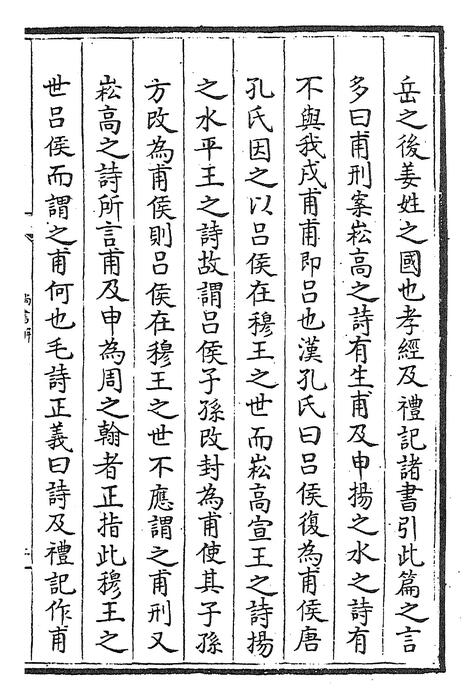 岳之後姜姓之國也孝經及禮記諸書引此篇之言
多曰甫刑案崧高之詩有生甫及申揚之水之詩有
不與我戍甫甫即吕也漢孔氏曰吕侯復為甫侯唐
孔氏因之以吕侯在穆王之世而崧高宣王之詩揚
之水平王之詩故謂吕侯子孫改封為甫使其子孫
方改為甫侯則吕侯在穆王之世不應謂之甫刑又
崧高之詩所言甫及申為周之翰者正指此穆王之
世吕侯而謂之甫何也毛詩正義曰詩及禮記作甫